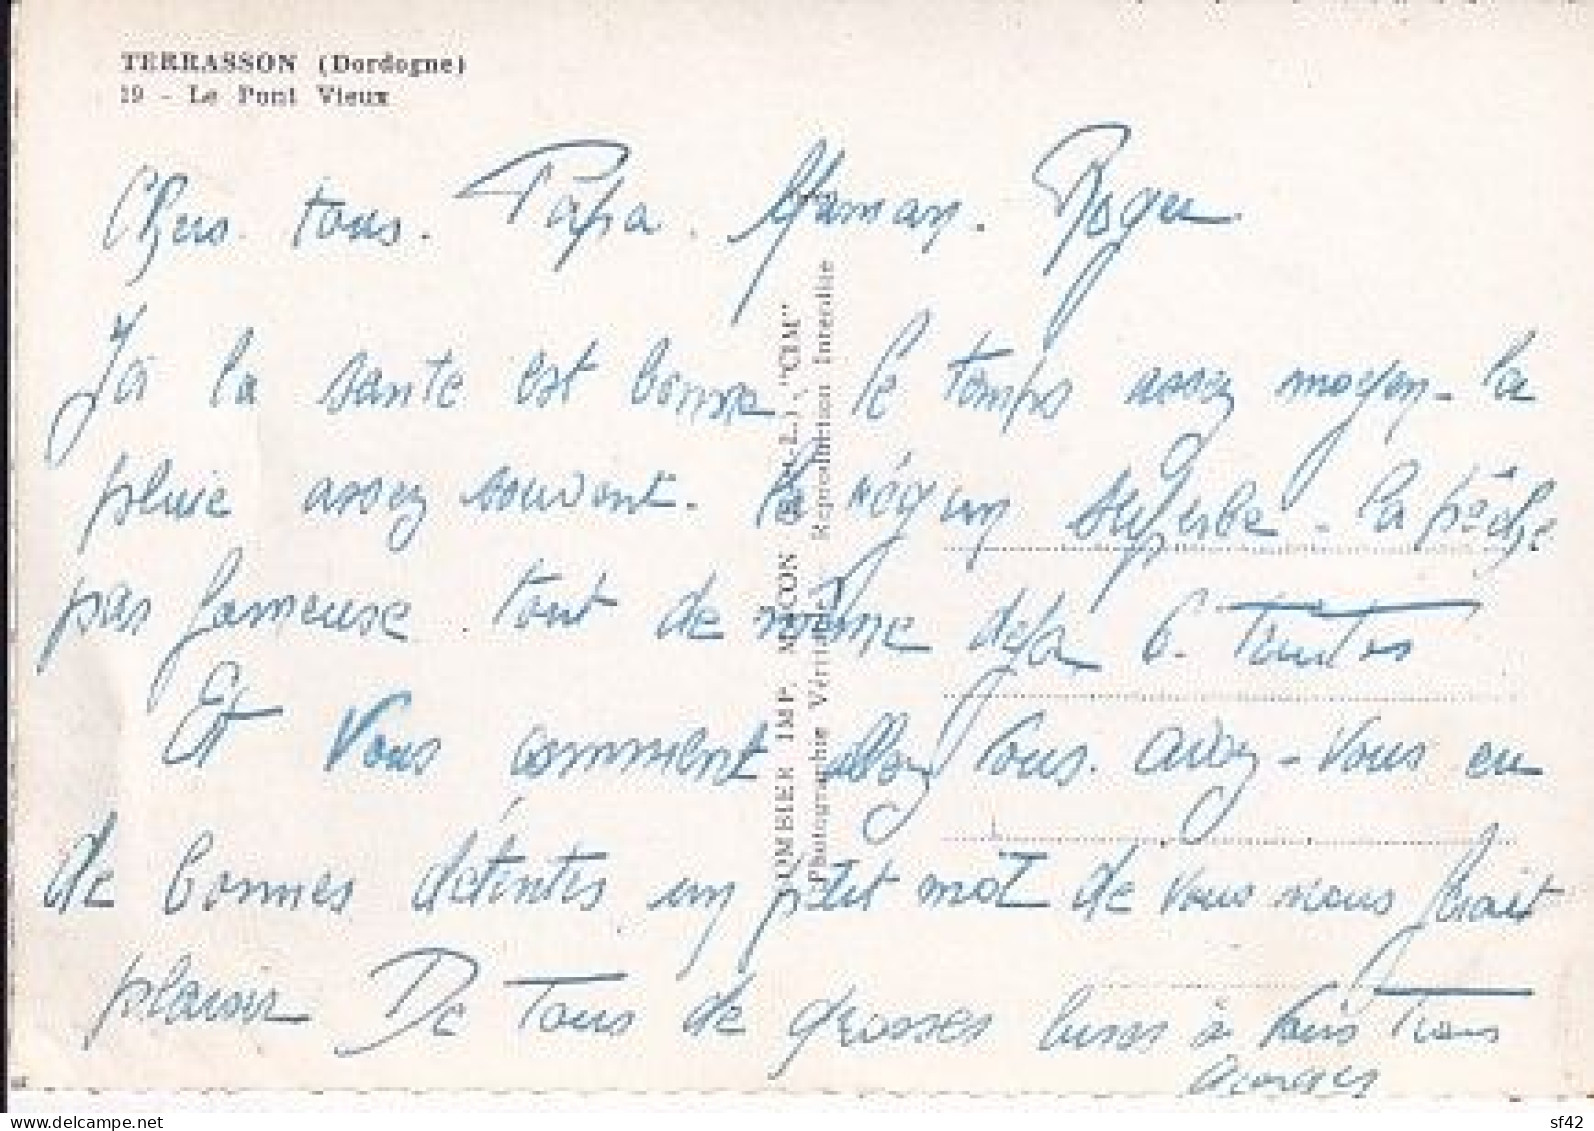 TERRASSON (Dordogne)
19 - Le Pont Vieux
Chers tous. Papa. Maman. Roger
Ici la sante est bonne le temps assez moyen - la
pluie assez souvent. la région superbe - la pêche
pas fameuse. tout de même deja 6. Truites
Et Vous comment allez vous. avez-vous eu
de bonnes détentes un p'tit mot de vous nous ferait
plaisir De Tous de grosses bises à Vous Trois
Georges
COMBIER IMP. MACON (S.-L.) "CIM"
Photographie Véritable - Reproduction Interdite
sf42